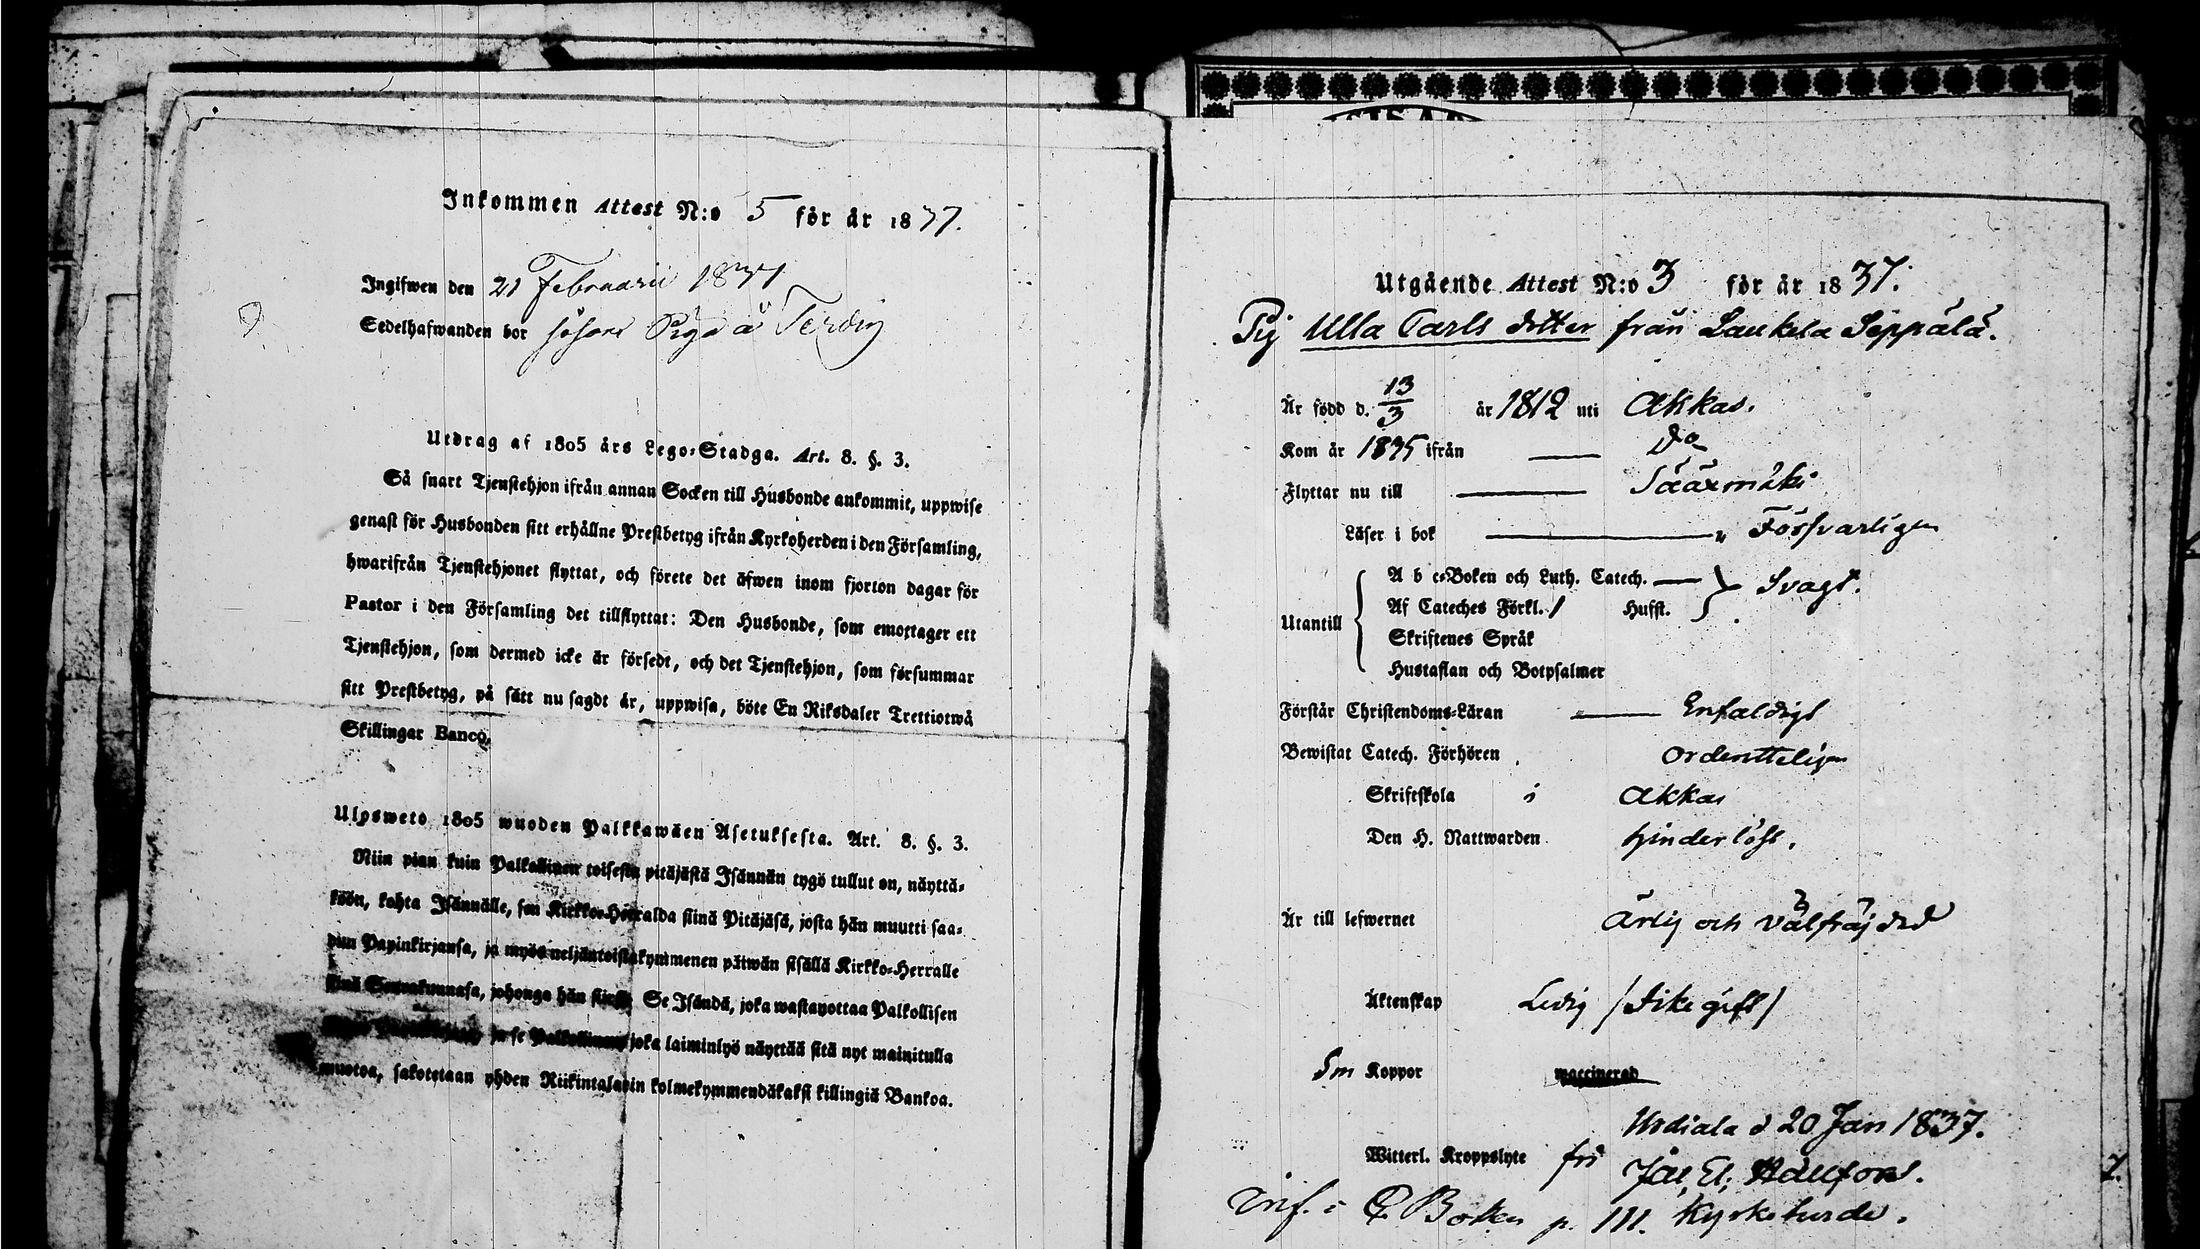 Inkommen Attest N:o 5 för år 1837.
Ingifwen den 21 Februarii 1837
Sedelhafwanden bor såsom Piga å
Utdrag af 1805 års Lego-Stadga. Art. 8. §. 3.
Så snart Tjenstehjon ifrån annan Socken till Husbonde ankommit, uppwise
genast för Husbonden sitt erhållne Prestbetyg ifrån Kyrkoherden i den Församling,
hwarifrån Tjenstehjonet flyttat, och förete det äfwen inom fjorton dagar för
Pastor i den Församling det tillflyttat: Den Husbonde, som emottager ett
Tjenstehjon, som dermed icke är försedt, och det Tjenstehjon, som försummar
sitt Prestbetyg, på sätt nu sagdt är, uppwisa, böte En Riksdaler Trettiotwå
Skillingar Banco.
Ulosweto 1805 wuoden Palkkawäen Asetuksesta. Art. 8. §. 3.
Niin pian kuin Palkollinen toisesta pitäjästä Isännän tygö tullut on, näyttä-
köön, kohta Isännälle, sen Kirkko-Herralda siinä Pitäjäsä, josta hän muutti saa-
dun Papinkirjansa, ja myös neljäntoistakymmenen päiwän sisällä Kirkko-Herralle
siinä Seurakunnasa, johonga hän siirsi: Se Isändä, joka wastanottaa Palkollisen
ja se Palkollinen joka laiminlyö näyttää sitä nyt mainitulla
muotoa, sakotetaan yhden Riikintalarin kolmekymmendäkaksi killingiä Bankoa.
Utgående Attest N:o 3 för år 1837.
Pig Ulla Carls dotter från Laukela Seppälä.
Är född d. 13/3 år 1812 uti Akkas.
Kom år 1835 ifrån Do
Flyttar nu till Sääxmäki
Läser i bok Försvarligen
A b c-Boken och Luth. Catech. Svagt.
Af Cateches Förkl. / Hufst.
Utantill
Skriftenes Språk
Hustaflan och Botpsalmer
Förstår Christendoms-Läran Enfaldigt
Bewistat Catech. Förhören ordentteligen
Skriftskola i Akkas
Den H. Nattwarden hinderlöst.
Är till lefwernet Ärlig och välfräjdad
Äktenskap Ledig /Icke gift/
Koppor waccinerad
Urdiala d 20 Jan 1837.
Witterl. Kroppslyte fri
Kyrkoherde.
Inf. i C. Boken p. 111.